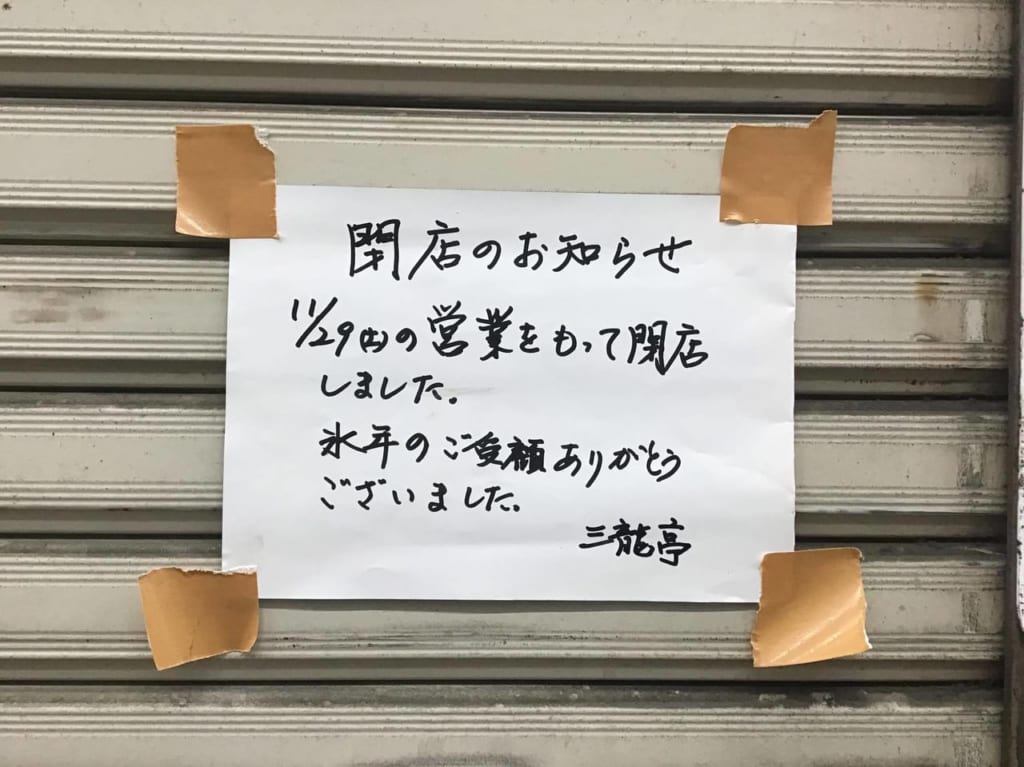 閉店のお知らせ
11/29(土)の営業をもって閉店
しました。
永年のご愛顧ありがとう
ございました。
三龍亭